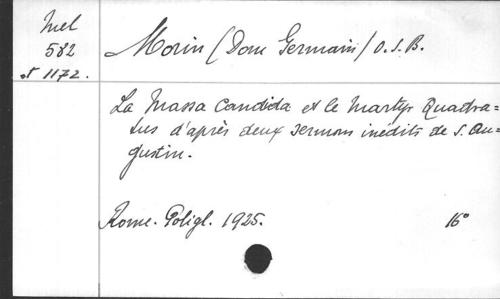 Mel
582
n° 1172.
Morin (Dom Germain) O.S.B.
La Massa Candida et le Martyr Quadra=
tus d'après deux sermons inédits de S. Au=
gustin.
Rome. Poligl. 1925. 16°